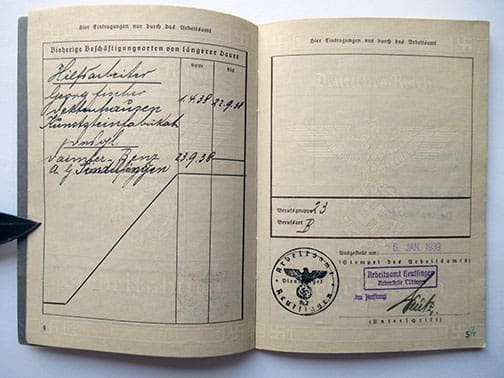 Hier Eintragungen nur durch das Arbeitsamt
Bisherige Beschäftigungsarten von längerer Dauer
vom
bis
Hilfsarbeiter
Georg Fischer
1.4.38
22.9.38
Kunststeinfabrikat
Daimler-Benz
23.9.38
A. G. Sindelfingen
4
Hier Eintragungen nur durch das Arbeitsamt
Berufsgruppe: 23
Berufsart: B
Ausgestellt am:
6. JAN. 1939
(Stempel des Arbeitsamts)
Arbeitsamt
Dienstsiegel
Reutlingen
Arbeitsamt Reutlingen
Nebenstelle Tübingen
Im Auftrag
(Unterschrift)
5